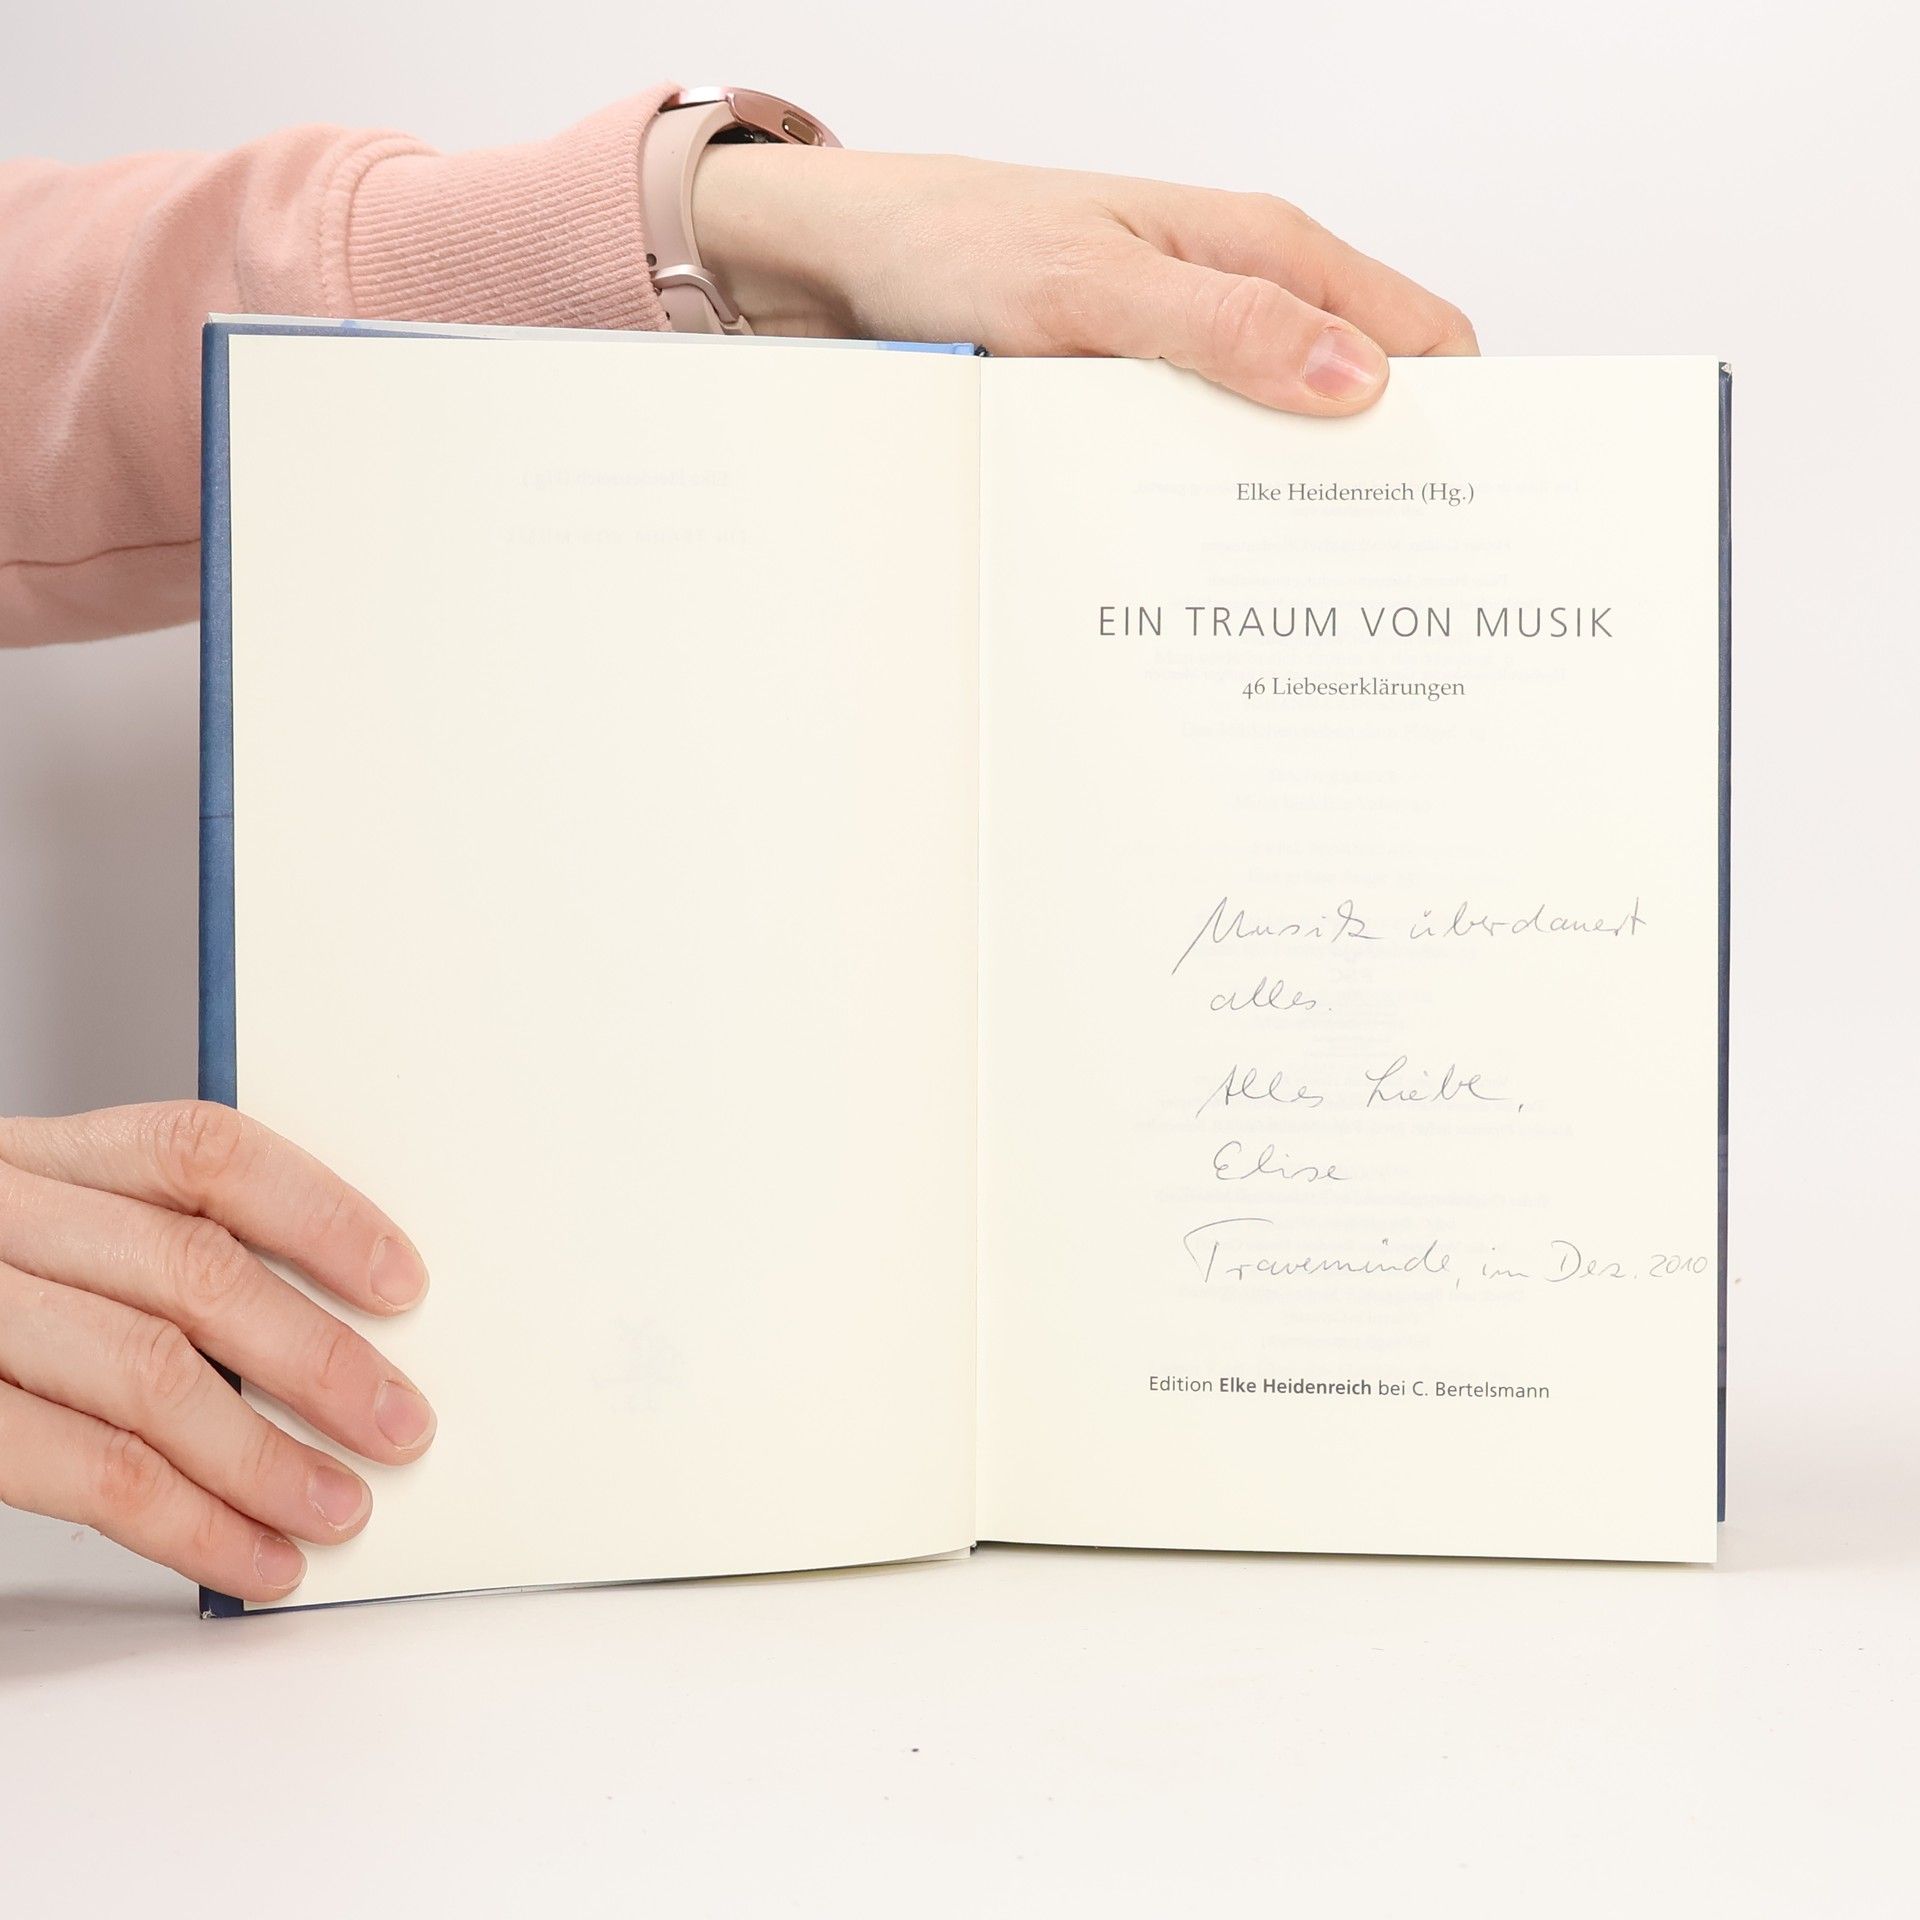 Elke Heidenreich (Hg.)
EIN TRAUM VON MUSIK
46 Liebeserklärungen
Musik überdauert
alles.
Alles Liebe,
Elise
Travemünde, im Dez. 2010
Edition Elke Heidenreich bei C. Bertelsmann